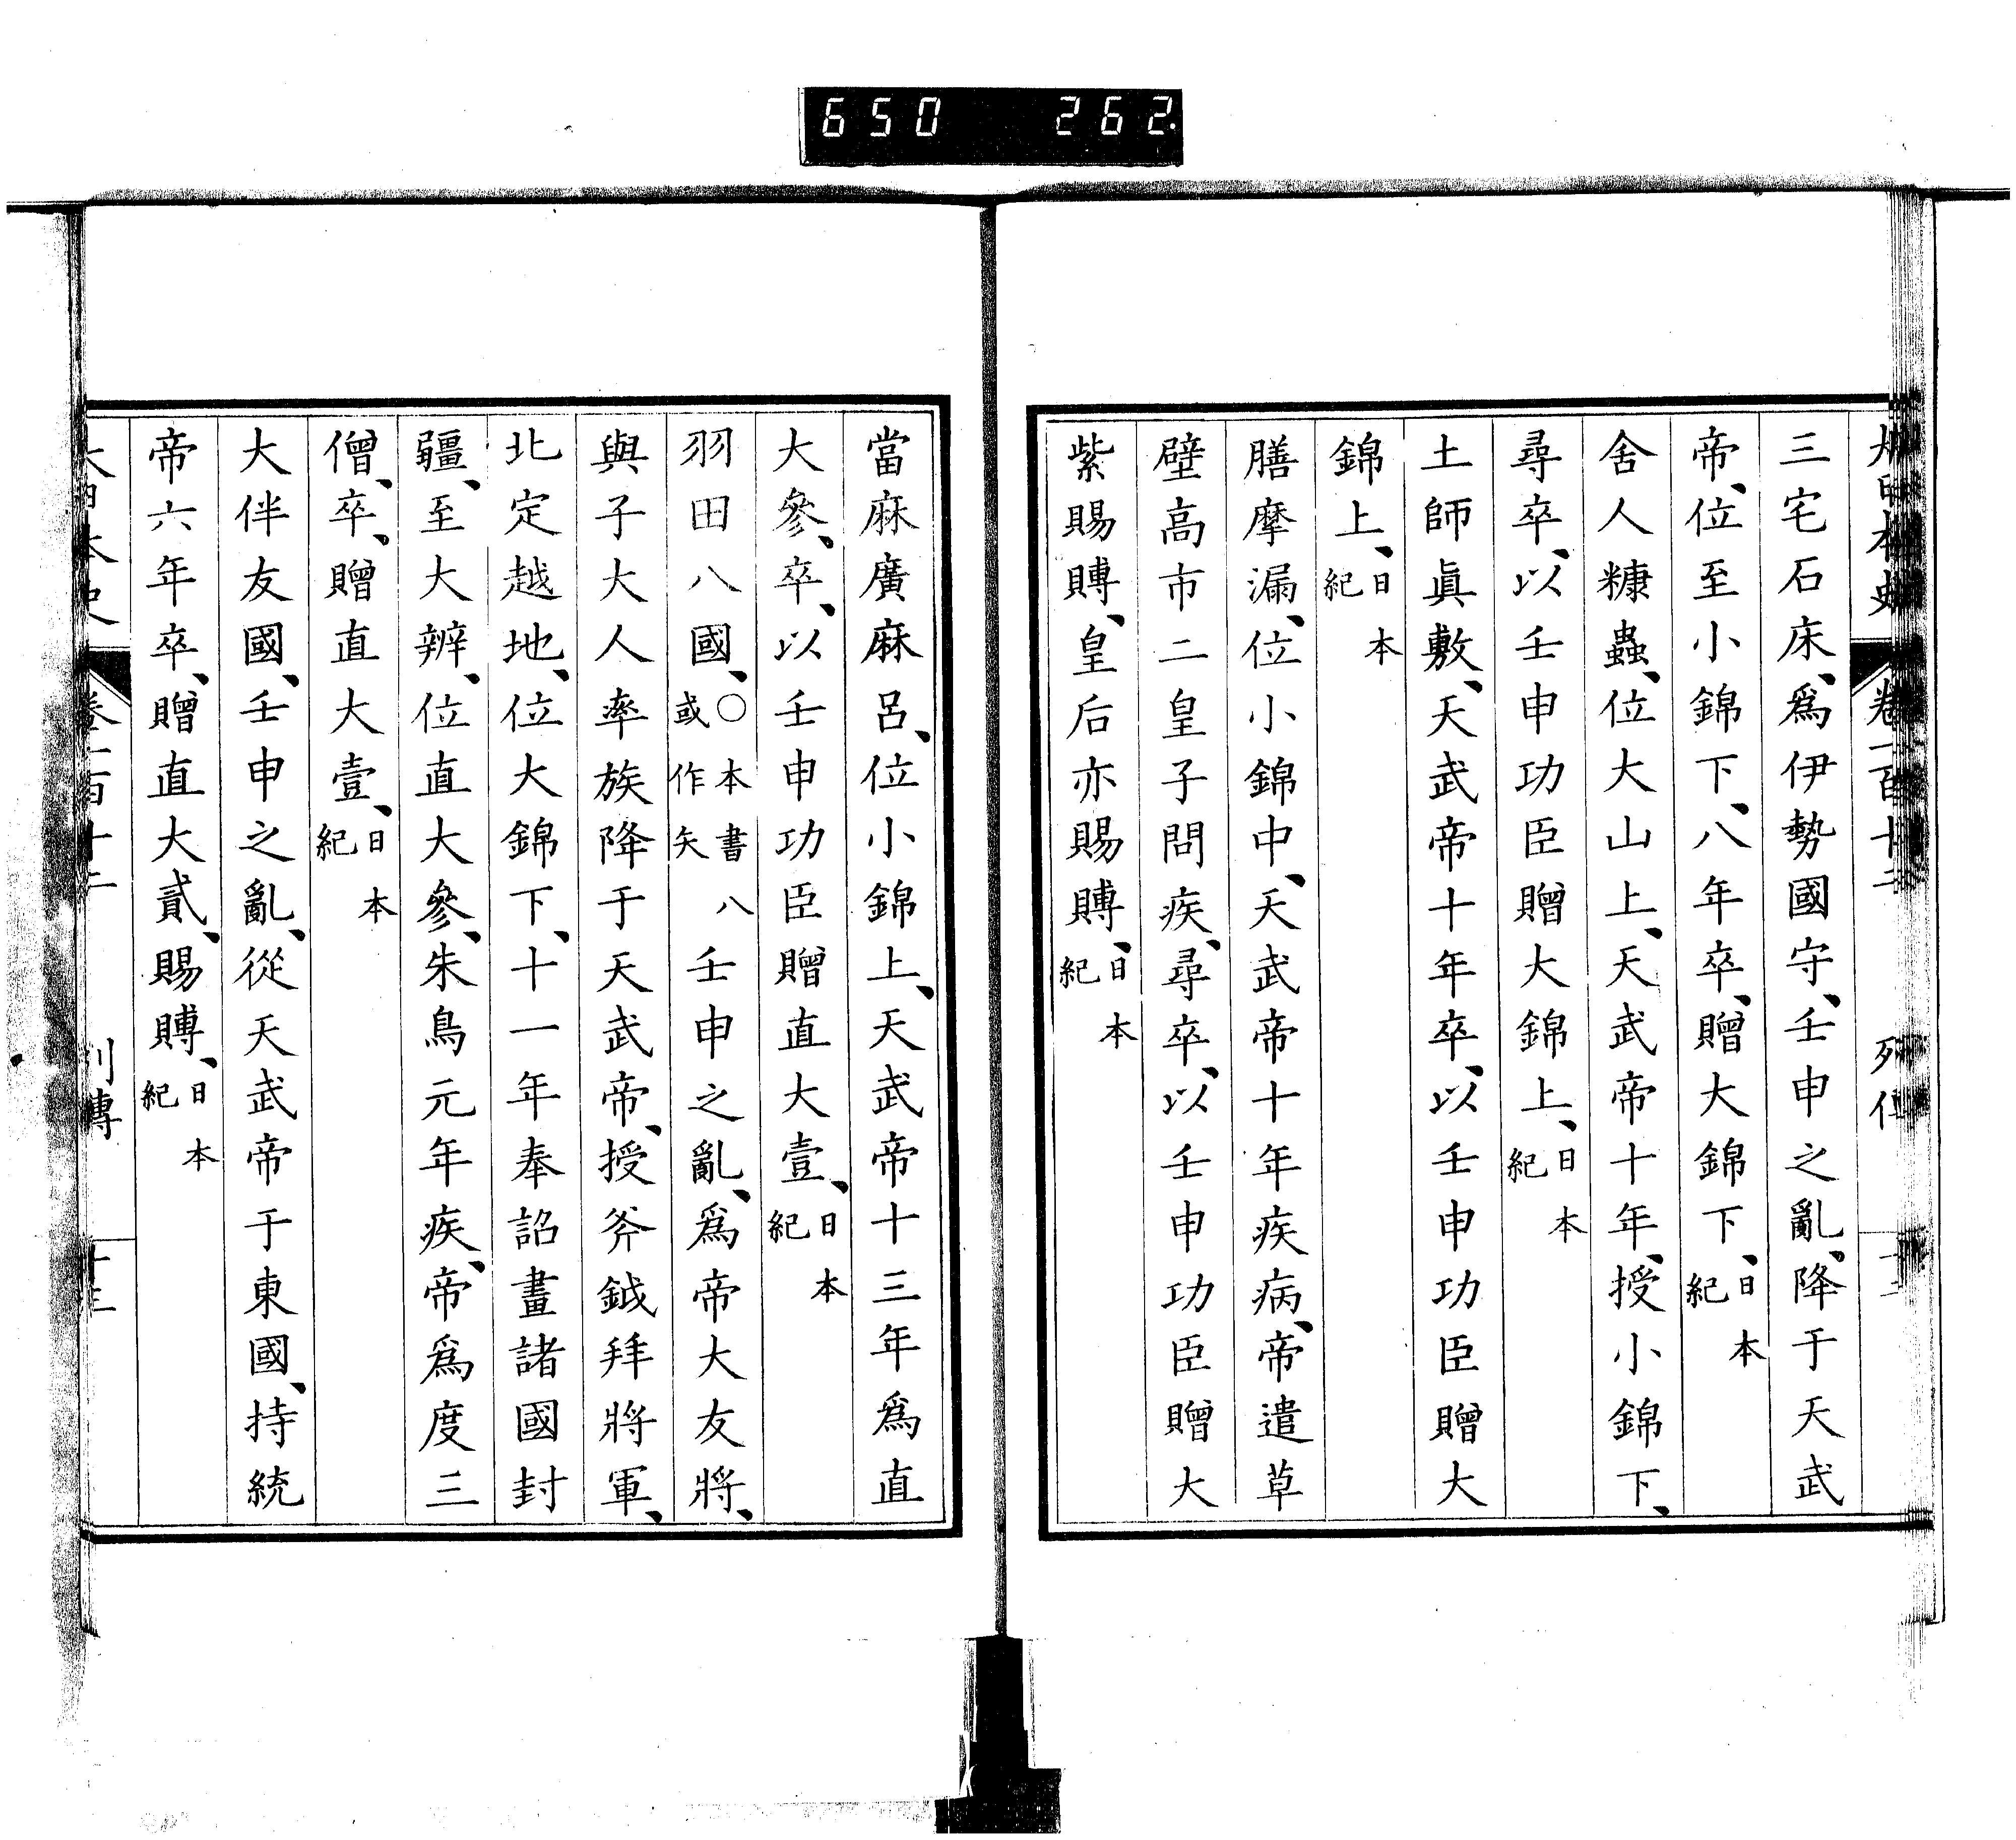 650 262.
大日本史 卷一百十二 列傳
三宅石床、爲伊勢國守、壬申之亂、降于天武
帝、位至小錦下、八年卒、贈大錦下、日本紀
舍人糠蟲、位大山上、天武帝十年、授小錦下、
尋卒、以壬申功臣贈大錦上、日本紀
土師眞敷、天武帝十年卒、以壬申功臣贈大
錦上、日本紀
膳摩漏、位小錦中、天武帝十年疾病、帝遣草
壁高市二皇子問疾、尋卒、以壬申功臣贈大
紫賜賻、皇后亦賜賻、日本紀
當麻廣麻呂、位小錦上、天武帝十三年爲直
大參、卒、以壬申功臣贈直大壹、日本紀
羽田八國、〇本書八或作矢壬申之亂、爲帝大友將、
與子大人率族降于天武帝、授斧鉞拜將軍、
北定越地、位大錦下、十一年奉詔畫諸國封
疆、至大辨、位直大參、朱鳥元年疾、帝爲度三
僧、卒、贈直大壹、日本紀
大伴友國、壬申之亂、從天武帝于東國、持統
帝六年卒、贈直大貳、賜賻、日本紀
大日本史 卷一百十二 列傳 十三